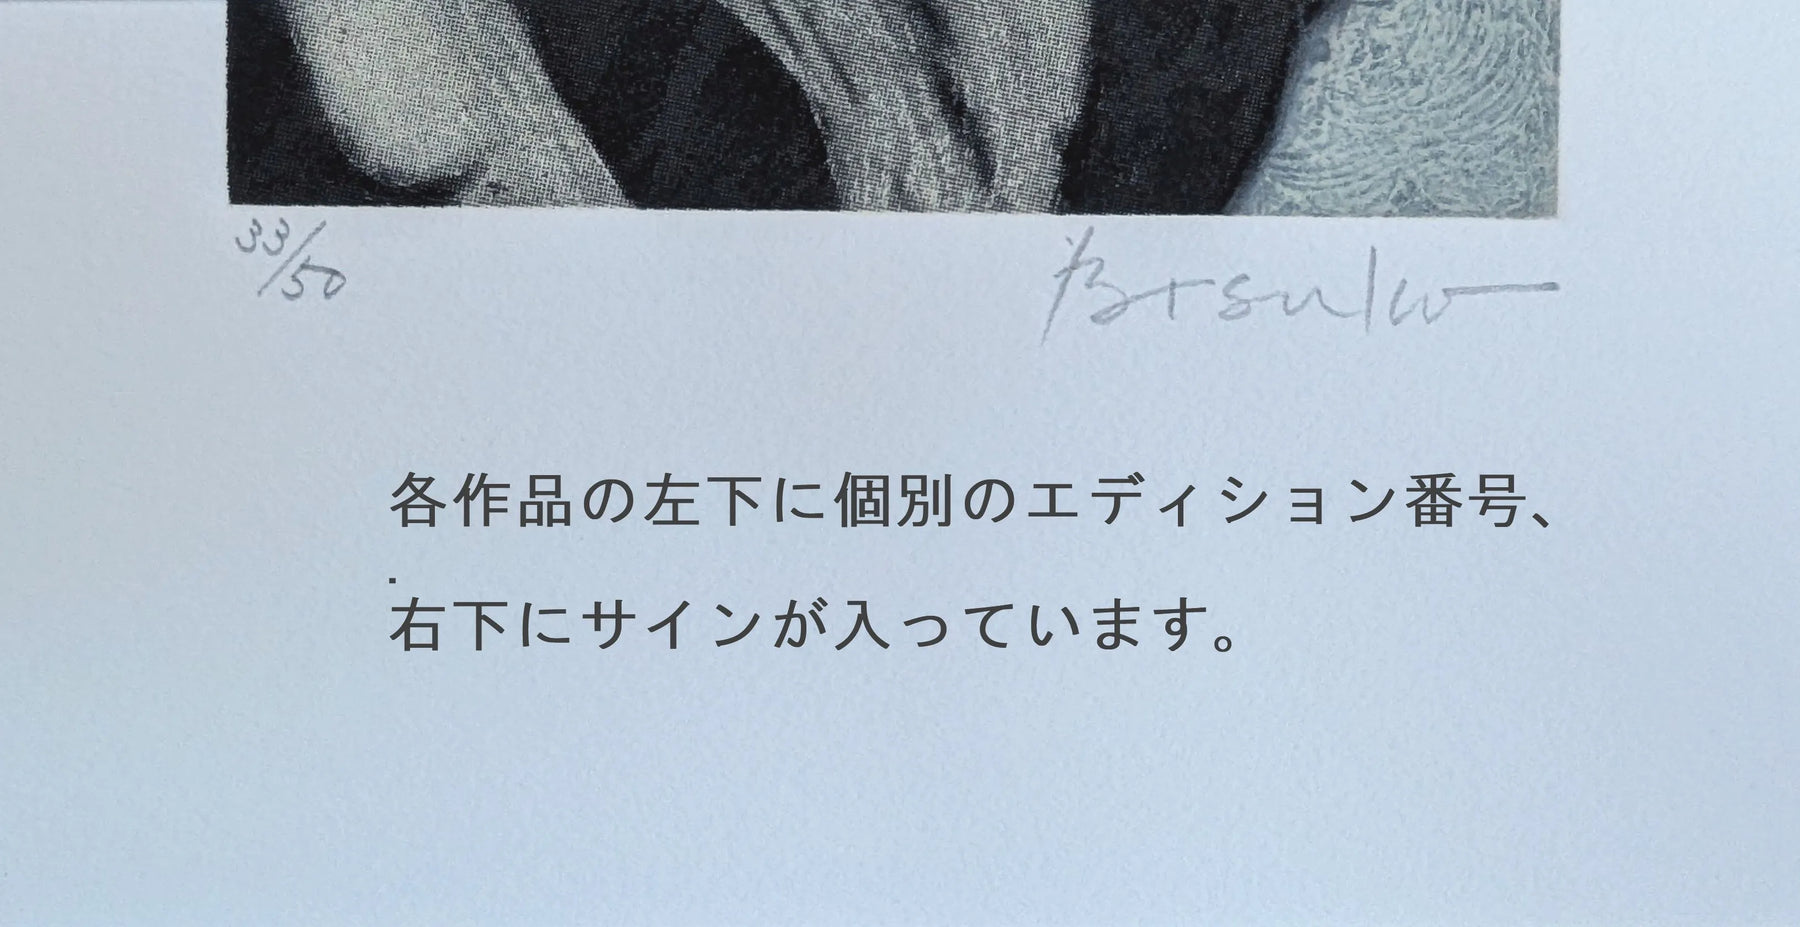 33/50
各作品の左下に個別のエディション番号、
右下にサインが入っています。